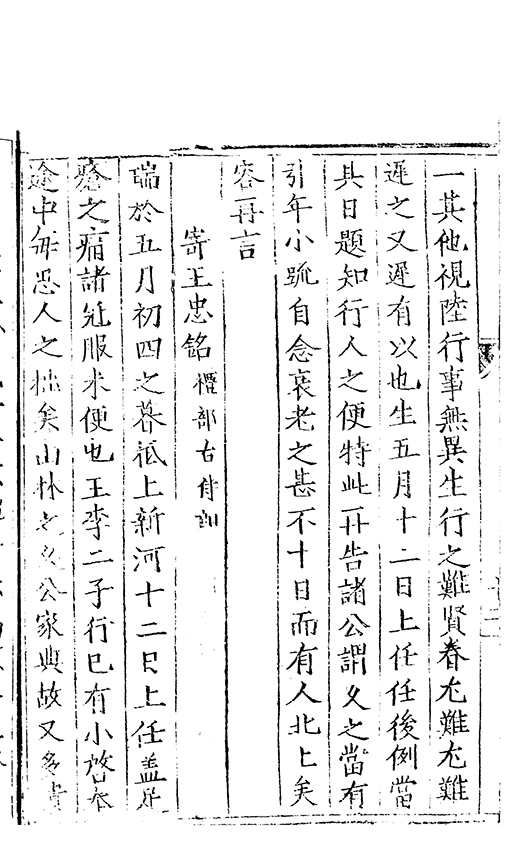 一其他視陸行事無異生行之難賢眷尤難尤難
遲之又遲有以也生五月十二日上任任後例當
具日題知行人之便特此再告諸公謂攵之當有
引年小疏自念衰老之甚不十日而有人北上矣
容再言
寄王忠銘 禮部右侍郎
瑞於五月初四之暮抵上新河十二日上任盖足
瘡之痛諸冠服未便也王李二子行已有小啓在
途中每恐人之拙矣山林之久公家典故又多